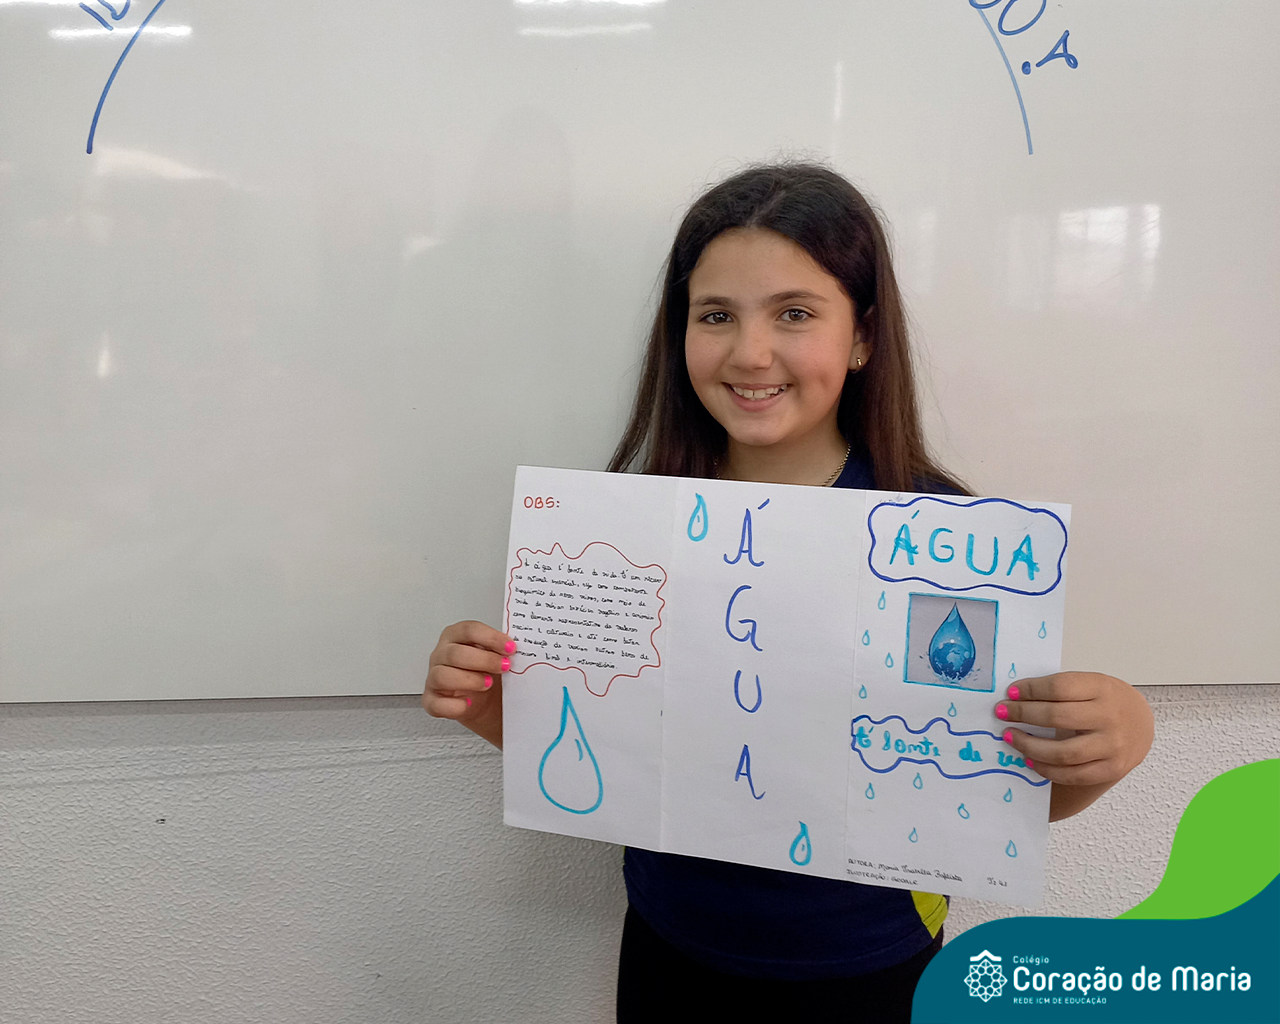 OBS:
A água é fonte da vida. É um recur
so natural essencial, seja como componente
bioquímico de seres vivos, como meio de
vida de várias espécies vegetais e animais
como elemento representativo de valores
sociais e culturais e até como fator
de produção de vários
Á
G
U
A
ÁGUA
É fonte de
AUTORA: Maria
ILUSTRAÇÃO: GOOGLE
Colégio
Coração de Maria
REDE ICM DE EDUCAÇÃO